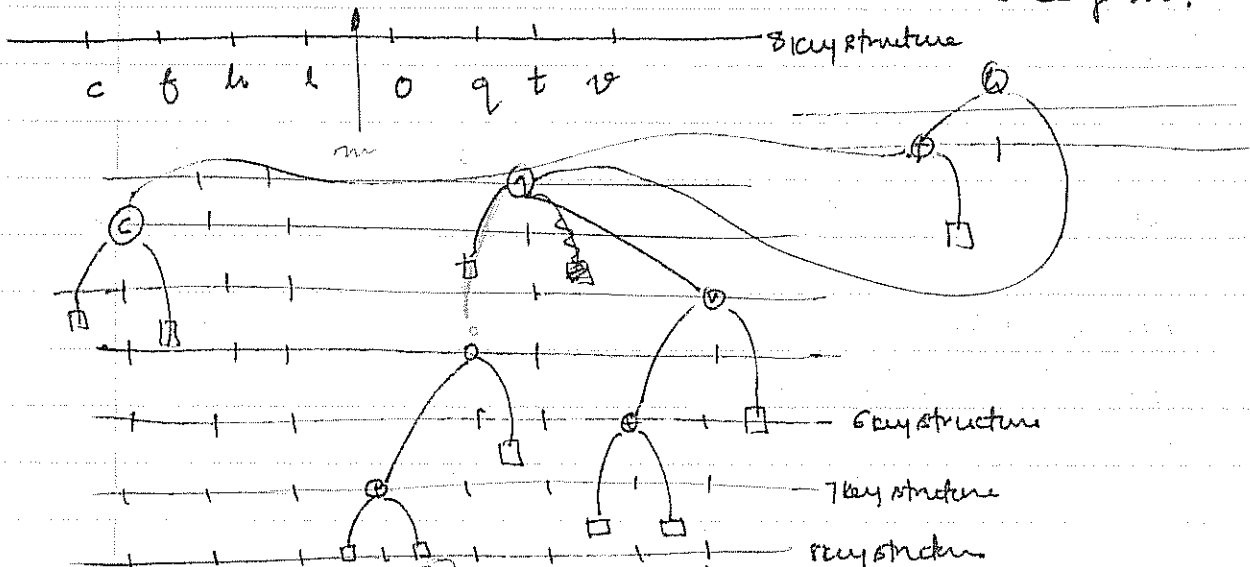 8 key structure
c f h l o q t v
m
c
v
6 key structure
7 key structure
8 key structure